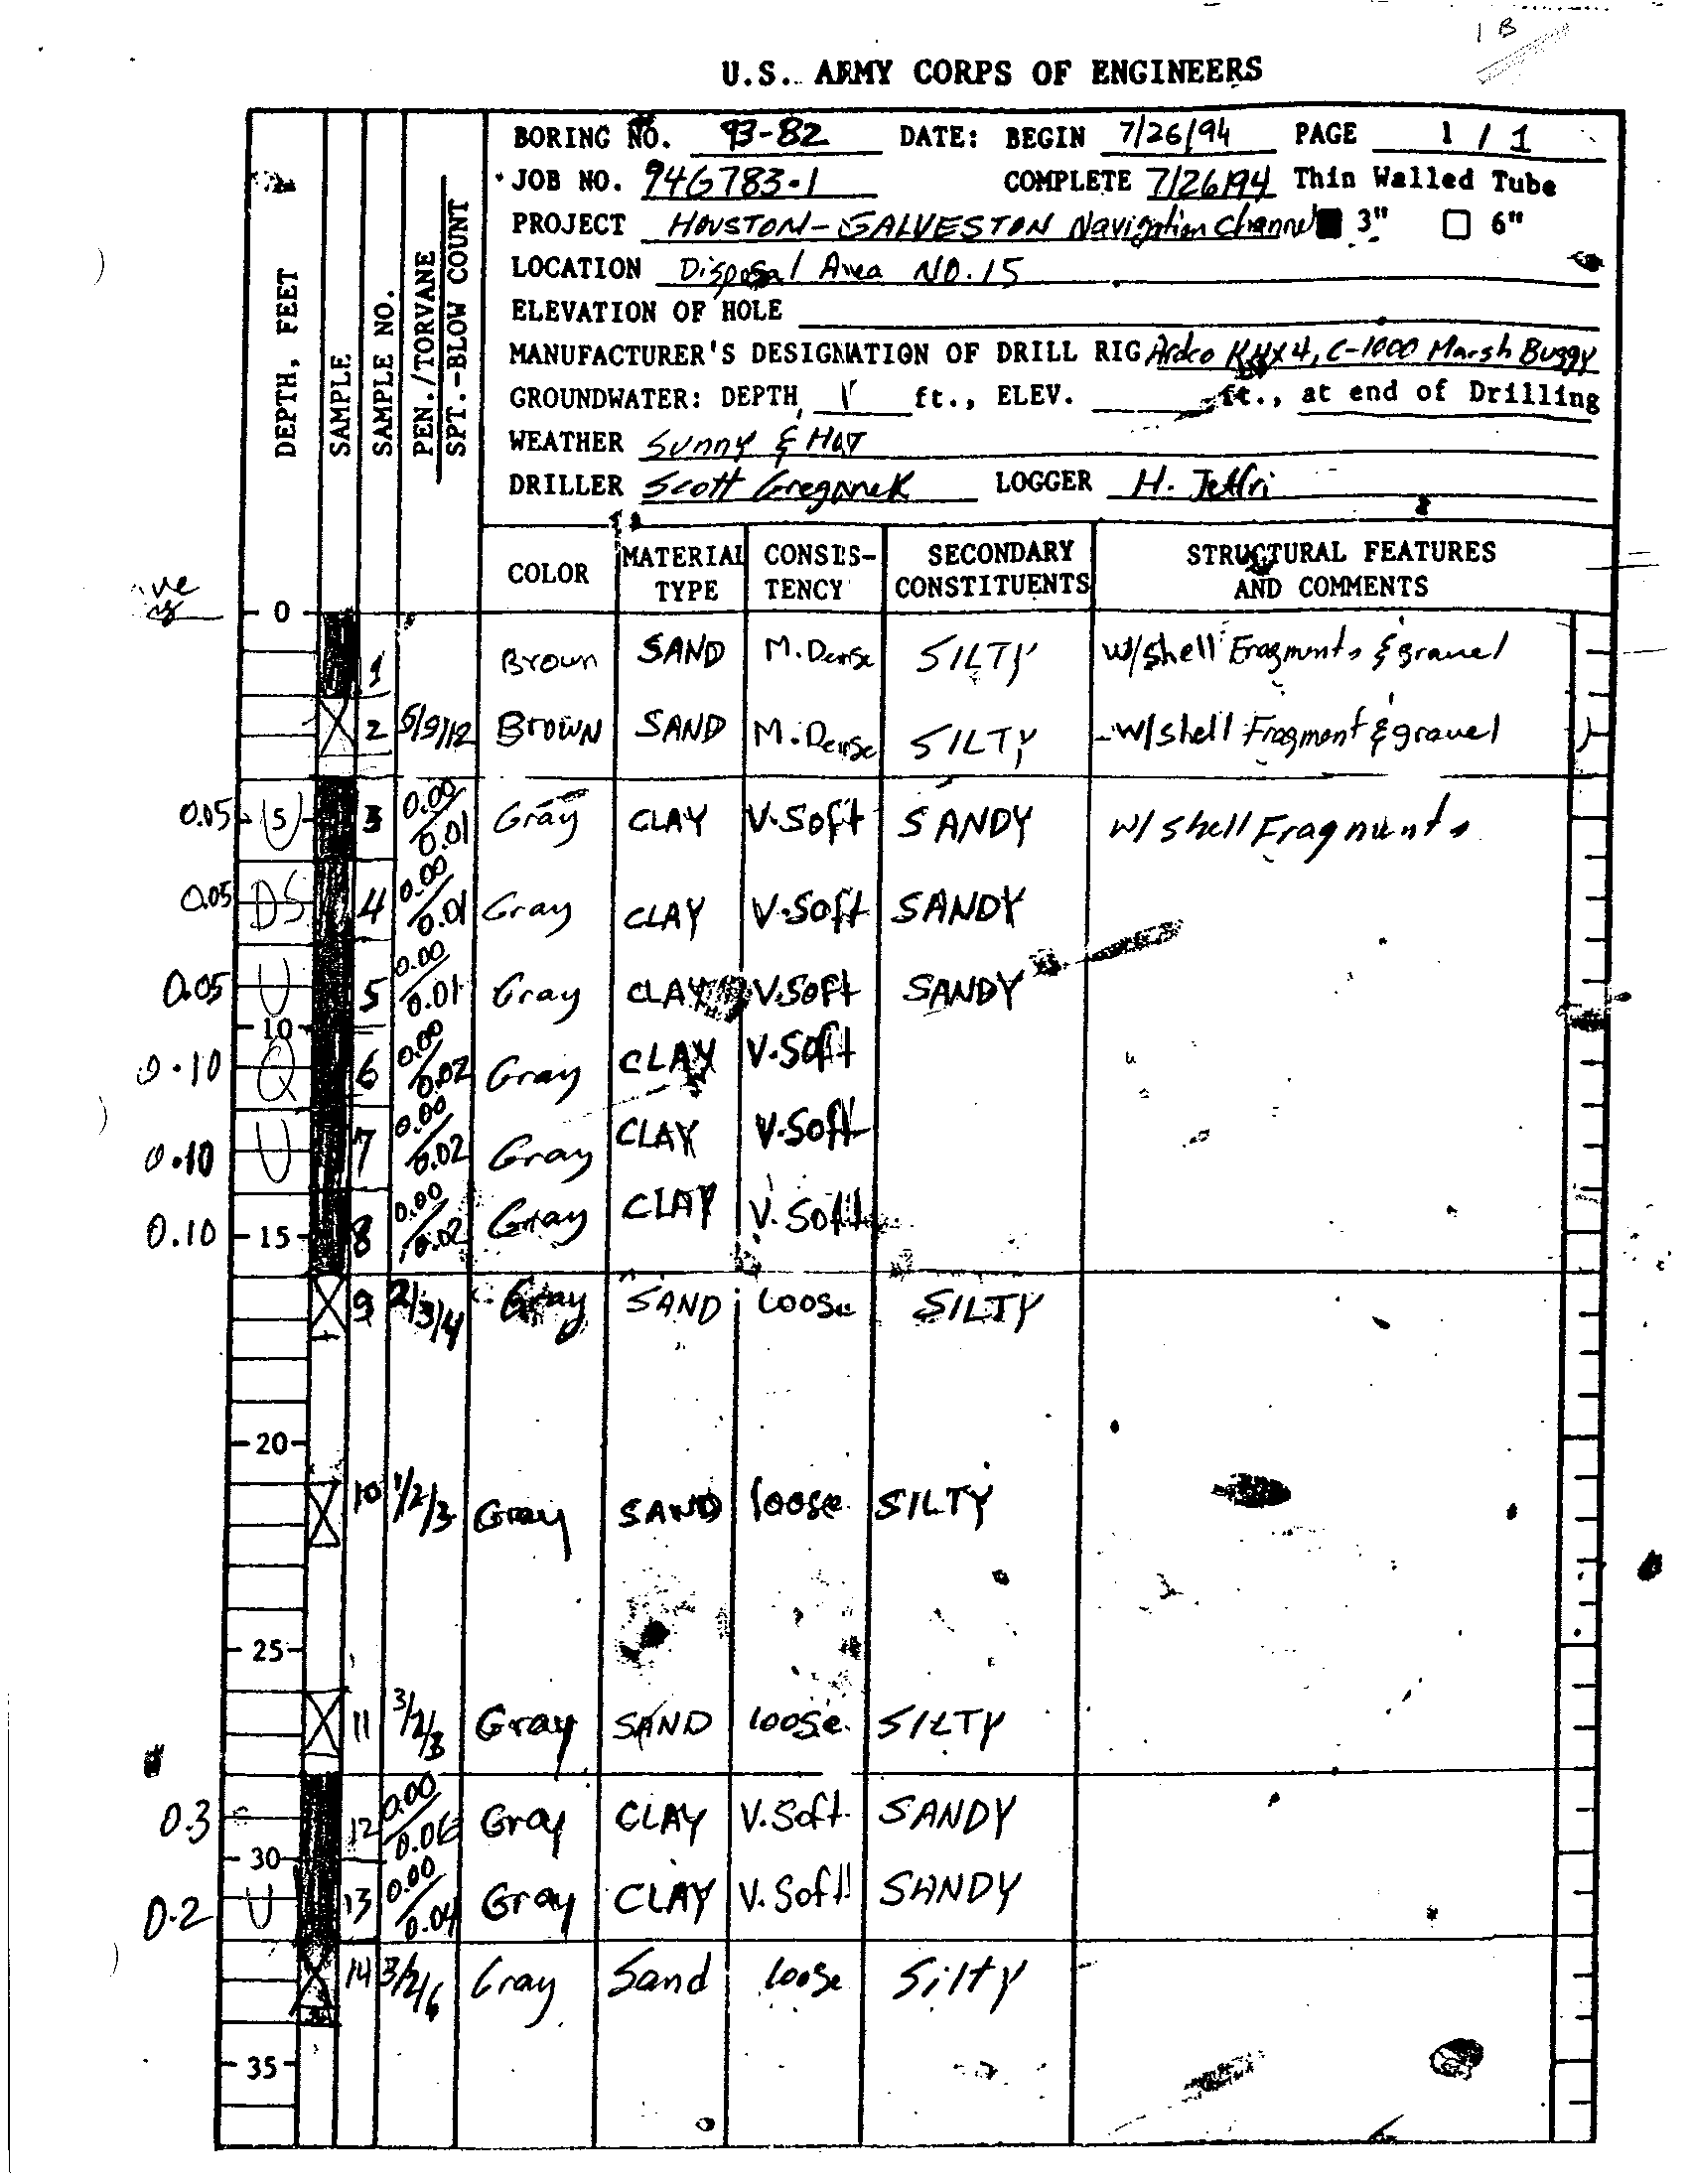 1 B
U.S. ARMY CORPS OF ENGINEERS
BORING NO. 93-82 DATE: BEGIN 7/26/94 PAGE 1 / 1
JOB NO. 94G783-1 COMPLETE 7/26/94 Thin Walled Tube
PROJECT HOUSTON-GALVESTON Navigation Channel 3" 6"
LOCATION Disposal Area NO. 15
ELEVATION OF HOLE
MANUFACTURER'S DESIGNATION OF DRILL RIG Ardco 4, C-1000 Marsh Buggy
GROUNDWATER: DEPTH ft., ELEV. ft., at end of Drilling
WEATHER Sunny & HOT
DRILLER Scott LOGGER H.
DEPTH, FEET
SAMPLE
SAMPLE NO.
PEN./TORVANE
SPT.-BLOW COUNT
COLOR MATERIAL TYPE CONSIS-TENCY SECONDARY CONSTITUENTS STRUCTURAL FEATURES AND COMMENTS
0
1 Brown SAND M. Dense SILTY w/shell Fragments & gravel
2 5/9/12 Brown SAND M. Dense SILTY -w/shell Fragment & gravel
0.05 3 0.00/0.01 Gray CLAY V. Soft SANDY w/ shell Fragments
0.05 DS 4 0.00/0.01 Gray CLAY V. Soft SANDY
0.05 U 5 0.00/0.01 Gray CLAY V. Soft SANDY
10
0.10 Q 6 0.00/0.02 Gray CLAY V. Soft
0.10 U 7 0.00/0.02 Gray CLAY V. Soft
0.10 15 8 0.00/0.02 Gray CLAY V. Soft
9 2/3/4 Gray SAND loose SILTY
20
10 1/2/3 Gray SAND loose SILTY
25
11 3/2/3 Gray SAND loose SILTY
0.3 12 0.00/0.06 Gray CLAY V. Soft SANDY
30
0.2 U 13 0.00/0.04 Gray CLAY V. Soft SANDY
14 3/2/6 Gray Sand loose Silty
35